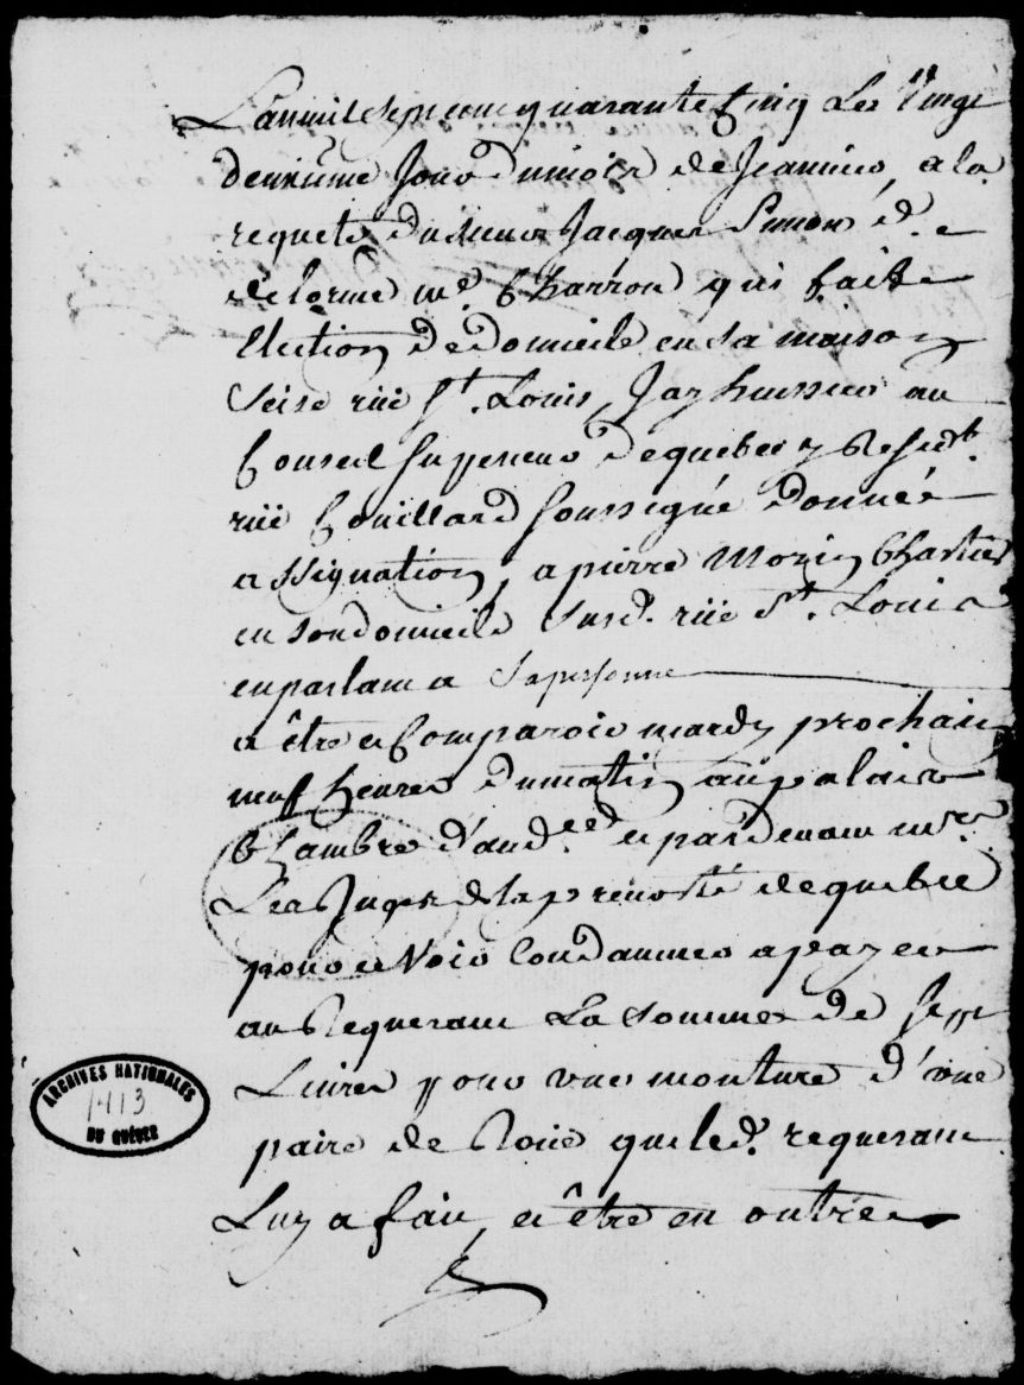 L'an mil sept cent quarante Cinq Les Vingt
deuxieme Jour du mois de Janvier, a la
requete du sieur Jacques Simon d.
delorme me. Charron qui fait
Election de Domicile en sa maison
seise rüe St. Louis, Jay huissier au
Conseil Superieur De quebec y Resident.
rüe Couillard soussigné Donné
assignation, a pierre Morin Chartier
en son domicile susd. rüe St. Louis
en parlant a sa personne
a être et Comparoir mardy prochain
neuf heures du matin au palais
Chambre d'aud.ce et pardevant mrs.
Les Juges de la prevosté de quebec
pour se Voir Condamner a payer
au Requerant La somme de sept
Livres pour une monture d'une
paire de Roüe que led. requerant
Luy a fait, et être en outre
ARCHIVES NATIONALES
1-113
DU QUÉBEC